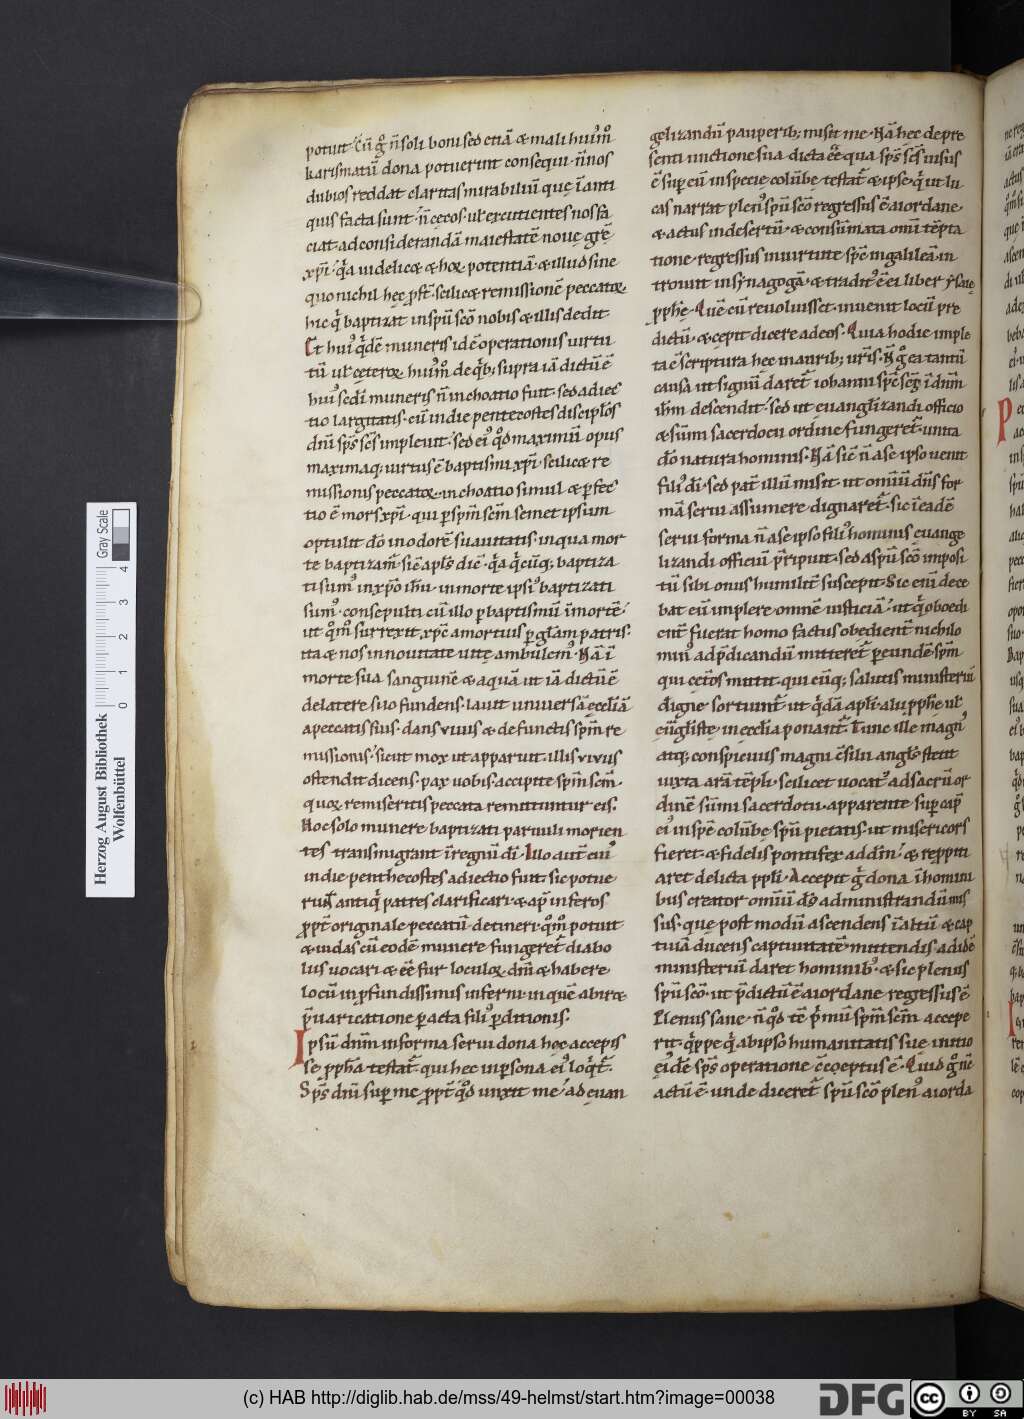 potuit. Cū gͦ n̄ soli boni sed etiā & mali huiꝰmͦ
karismatū dona potuerint consequi. n̄ nos
dubios reddat claritas mirabiliū quę ī anti
quis facta sunt. n̄ cęcos ul̄ excutientes nos fa
ciat ad considerandā maiestatē nouę gr̄ę
xp̄i. q̄a uidelicꝫ & hoꝝ potentiā & illud sine
quo nichil hęc p̄s̄t. scilicꝫ remissionē peccatoꝝ
hic qͥ baptizat in sp̄u sc̄o nobis & illis dedit.
Et huiꝰ qͥdē muneris idē operationis uirtu
tū ul̄ cęteroꝝ huiꝰmͦ de qͥbꝫ supra iā dictū ē
huiꝰ sed muneris n̄ inchoatio fuit. sed adiec
tio largitatis. cū in die pentecostes discipl̄os
dn̄i sp̄s sc̄s impleuit. sed eiꝰ qͦd maximū opus
maximaqꝫ uirtus ē baptismi xp̄i. scilicꝫ re
missionis peccatoꝝ inchoatio simul & ꝑfec
tio ē mors xp̄i. qui ꝑ sp̄m sc̄m semet ipsum
optulit dō in odorē suauitatis. in qua mor
te baptizam̄. sic apl̄s dic̄. q̄a qͥcūqꝫ baptiza
ti sumꝰ in xp̄o ih̄u. in morte ipsiꝰ baptizati
sumꝰ. consepulti cū illo ꝑ baptismū ī mortē.
ut qͦmͦ surrexit xp̄c a mortuis ꝑ gl̄am patris.
ita & nos in nouitate uitę ambulemꝰ. Nā ī
morte sua sanguinē & aquā ut iā dictū ē
de latere suo fundens. lauit uniuersā ęccl̄iā
a peccatis suis. dans uiuis & defunctis sp̄m re
missionis. sicut mox ut apparuit. illis uiuus
ostendit dicens. pax uobis. accipite sp̄m sc̄m.
quoꝝ remiseritis peccata remittuntur eis.
Hoc solo munere baptizati paruuli morien
tes transmigrant ī regnū dī. Illo aut̄ cuiꝰ
in die penthecostes adiectio fuit. sic potue
runt antiqͥ patres clarificari. & ap̄ inferos
ꝓpt̄ originale peccatū detineri. qͦmͦ potuit
& iudas cū eodē munere fungeret̄ diabo
lus uocari & ēē fur. loculoꝝ dn̄i & habere
locū in ꝓfundissimis inferni. in quē abiret
p̄uaricatione ꝑacta filiꝰ ꝑditionis.
Ipsū dn̄m in forma serui dona hęc accepis
se ꝓph̄a testat̄. qui hęc in ꝑsona eiꝰ loqͥt̄.
Sp̄s dn̄i suꝑ me ꝓpt̄ qͦd unxit me. ad euan
gelizandū pauperibꝫ misit me. Nā hęc de pre
senti unctione sua dicta ēē qua sp̄s sc̄s uisus
ē suꝑ eū in specię colūbę testat̄. & ipse. qͥ ut lu
cas narrat plenꝰ sp̄u sc̄o regressus ē a iordane.
& actus in desertū. & consūmata omī tēpta
tione. regressus in uirtute sp̄c in galileā. in
trouit in synagogā. & traditꝰ ē ei liber ysaię
ꝓph̄ę. Quē cū reuoluisset. inuenit locū pre
dictū. & cepit dicere ad eos. Quia hodie imple
ta ē scriptura hęc in aurib; ur̄is. N̄ gͦ ea tantū
causa ut signū daret̄ iohanni sp̄c sc̄s ī dn̄m
ih̄m descendit. sed ut euangl̄izandi officio
& sūmi sacerdocii ordine fungeret̄. unita
dō natura hominis. Nā sic n̄ a se ipso uenit
filiꝰ dī. sed pat̄ illū misit ut omīū dn̄s for
mā serui assumere dignaret̄. sic ī eadē
serui forma n̄ a se ipso filiꝰ hominis euange
lizandi officiū p̄ripuit. sed a sp̄u sc̄o imposi
tū sibi onus humilit̄ suscepit. Sic enī dece
bat eū implere omnē iusticiā. ut qͥ oboedi
ent̄ fuerat homo factus. obedient̄ nichilo
minꝰ ad p̄dicandū mitteret̄ ꝑ eundē sp̄m
qui cęt̄os mittit. qui cūqꝫ salutis ministeriū
digne sortiunt̄. ut qͥdā apl̄i. alii ꝓph̄ę ul̄
euūgl̄istę. in ęccl̄ia ponant̄. Tunc ille magnꝰ
atqꝫ conspicuus magni c̄silii angl̄s stetit
iuxta arā tēpl̄i. scilicet uocatꝰ ad sacrū or
dinē sūmi sacerdotii. apparente suꝑ cap̄
eiꝰ in spē colūbę sp̄u pietatis. ut misericors
fieret. & fidelis pontifex ad dm̄. & repiti
aret delicta ppl̄i. Accepit ḡ dona ī homini
bus creator omīū dō administrandū mis
sus. que post modū ascendens ī altū & cap
tiuā ducens captiuitatē. mittendis ad idē
ministeriū daret hominibꝰ. & sic plenus
sp̄u sc̄o. ut p̄dictū ē a iordane regressus ē
Plenus sane. n̄ qͦd tc̄ pͥmū sp̄m sc̄m accepe
rit. qͥppe qͥ ab ipso humanitatis suę initio
eiꝰdē sp̄s operatione c̄ceptus ē. Quid gͦ n̄c
actū ē. unde diceret̄ sp̄u sc̄o plenꝰ a iorda
Herzog August Bibliothek
Wolfenbüttel
Gray Scale
0 1 2 3 4
(c) HAB http://diglib.hab.de/mss/49-helmst/start.htm?image=00038
DFG
cc BY SA